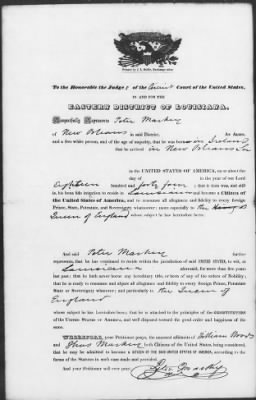 To the Honorable the Judge of the Circuit Court of the United States,
IN AND FOR THE
EASTERN DISTRICT OF LOUISIANA.
Respectfully Represents Peter Markey
of New Orleans in said District,
and a free white person, and of the age of majority, that he was born in Ireland
that he arrived in New Orleans La
in the UNITED STATES OF AMERICA, on or about the
day of in the year of our Lord
Eighteen hundred and forty four ; that it then was, and still
is his bona fide intention to reside in Louisiana and become a Citizen of
the United States of America, and to renounce all allegiance and fidelity to every foreign
Prince, State, Potentate, and Sovereignty whatever; and more especially to the
Queen of England whose subject he has heretofore been.
And said Peter Markey further
represents, that he has continued to reside within the jurisdiction of said UNITED STATES, to wit, in
Louisiana aforesaid, for more than five years last
past; that he hath never borne any hereditary title, or been of any of the orders of Nobility;
that he is ready to renounce and abjure all allegiance and fidelity to every foreign Prince, Potentate
State or Sovereignty whatever; and particularly to the Queen of
England
whose subject he has heretofore been; that he is attached to the principles of the CONSTITUTION
of the United States of America, and well disposed toward the good order and happiness of the
same.
WHEREFORE, Your Petitioner prays, the annexed affidavits of William Woods
and Markey both Citizens of the United States being considered,
that he may be admitted to become a CITIZEN OF THE SAID UNITED STATES OF AMERICA, according to the
forms of the Statutes in such case made and provided.
And your Petitioner will ever pray.
Peter Markey